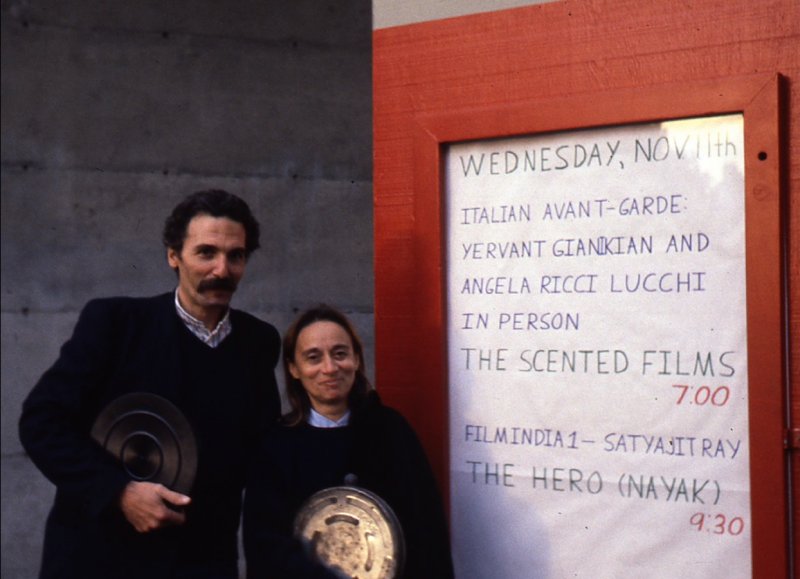 WEDNESDAY, NOV 11th
ITALIAN AVANT-GARDE:
YERVANT GIANIKIAN AND
ANGELA RICCI LUCCHI
IN PERSON
THE SCENTED FILMS
7:00
FILMINDIA 1 - SATYAJIT RAY
THE HERO (NAYAK)
9:30